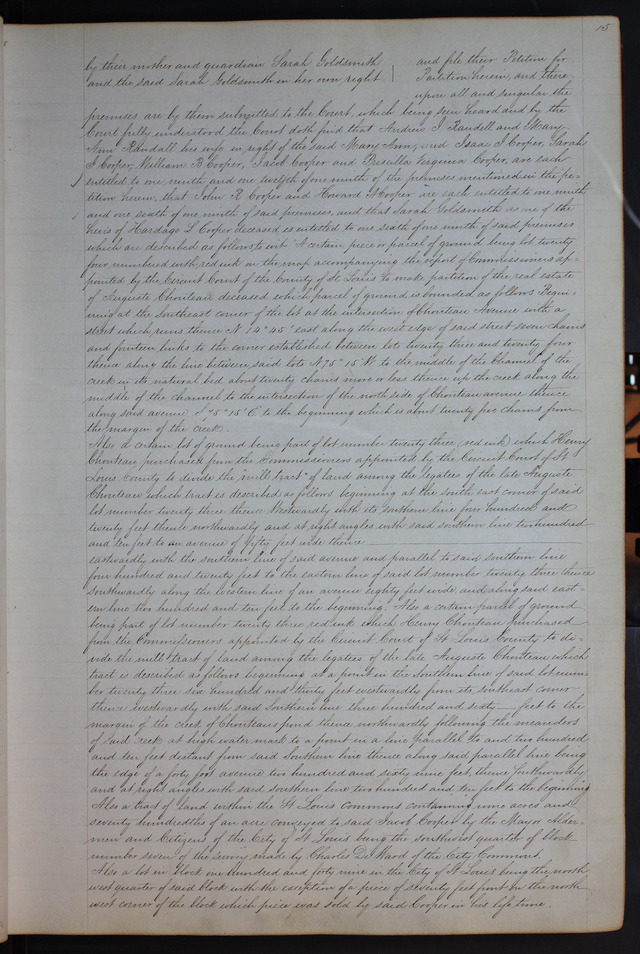 15
by their mother and guardian Sarah Goldsmith | and file their Petition for
and the said Sarah Goldsmith in her own right | Partition herein, and there
upon all and singular the
premises are by them submitted to the Court, which being seen heard and by the
Court fully understood the Court doth find that Andrew J Randell and Mary
Ann Randall his wife in right of the said Mary Ann, and Isaac J Cooper, Sarah
J Cooper, William B Cooper, Jacob Cooper and Cooper, are each
entitled to one ninth and one twelfth of one ninth of the premises mentioned in the pe=
tition herein, that John R Cooper and Howard N Cooper are each entitled to one ninth
and one sixth of one ninth of said premises, and that Sarah Goldsmith as one of the
heirs of Hardage L Cooper deceased is entitled to one sixth of one ninth of said premises
which are described as follows to wit "A certain piece or parcel of ground being lot twenty
four numbered with red ink on the map accompanying the report of Commissioners ap=
pointed by the Circuit Court of the County of St Louis to make partition of the real estate
of Auguste Chouteau deceased which parcel of ground is bounded as follows Begin=
ning at the Southeast corner of the lot at the intersection of Chouteau Avenue with a
street which runs thence N 14° 45' east along the west edge of said street seven chains
and fourteen links to the corner established between lots twenty three and twenty four
thence along the line between said lots N 75° 15' W to the middle of the Channel of the
creek in its natural bed about twenty chains more or less thence up the creek along the
middle of the channel to the intersection of the north side of Chouteau avenue thence
along said avenue S 75° 15' E to the beginning which is about twenty five chains from
the margin of the creek.
Also a certain lot of ground being part of lot number twenty three (red ink) which Henry
Chouteau purchased from the Commissioners appointed by the Circuit Court of St
Louis County to divide the "mill tract" of land among the legatees of the late Auguste
Chouteau which tract is described as follows beginning at the south east corner of said
lot number twenty three thence Westwardly with its southern line four hundred and
twenty feet thence northwardly and at right angles with said southern line two hundred
and ten feet to an avenue of fifty feet wide thence
eastwardly with the southern line of said avenue and parallel to said southern line
four hundred and twenty feet to the eastern line of said lot number twenty three thence
southwardly along the western line of an avenue eighty feet wide and along said east=
ern line two hundred and ten feet to the beginning. Also a certain parcel of ground
being part of lot number twenty three red ink which Henry Chouteau purchased
from the Commissioners appointed by the Circuit Court of St Louis County to di=
vide the mill tract of land among the legatees of the late Auguste Chouteau which
tract is described as follows beginning at a point in the Southern line of said lot num=
ber twenty three six hundred and thirty feet westwardly from its southeast corner
thence westwardly with said Southern line three hundred and sixty feet to the
margin of the creek of Chouteaus pond thence northwardly following the meanders
of said creek at high water mark to a point in a line parallel to and two hundred
and ten feet distant from said Southern line thence along said parallel line being
the edge of a forty foot avenue two hundred and sixty nine feet, thence Southwardly
and at right angles with said southern line two hundred and ten feet to the beginning
Also a tract of land within the St Louis commons containing nine acres and
seventy hundredths of an acre conveyed to said Jacob Cooper by the Mayor Alder=
men and Citizens of the City of St Louis being the southwest quarter of block
number seven of the survey made by Charles De Ward of the City Commons.
Also a lot in block one hundred and forty nine in the City of St Louis being the north
west quarter of said block with the exception of a piece of seventy feet front on the north
west corner of the block which piece was sold by said Cooper in his life time.